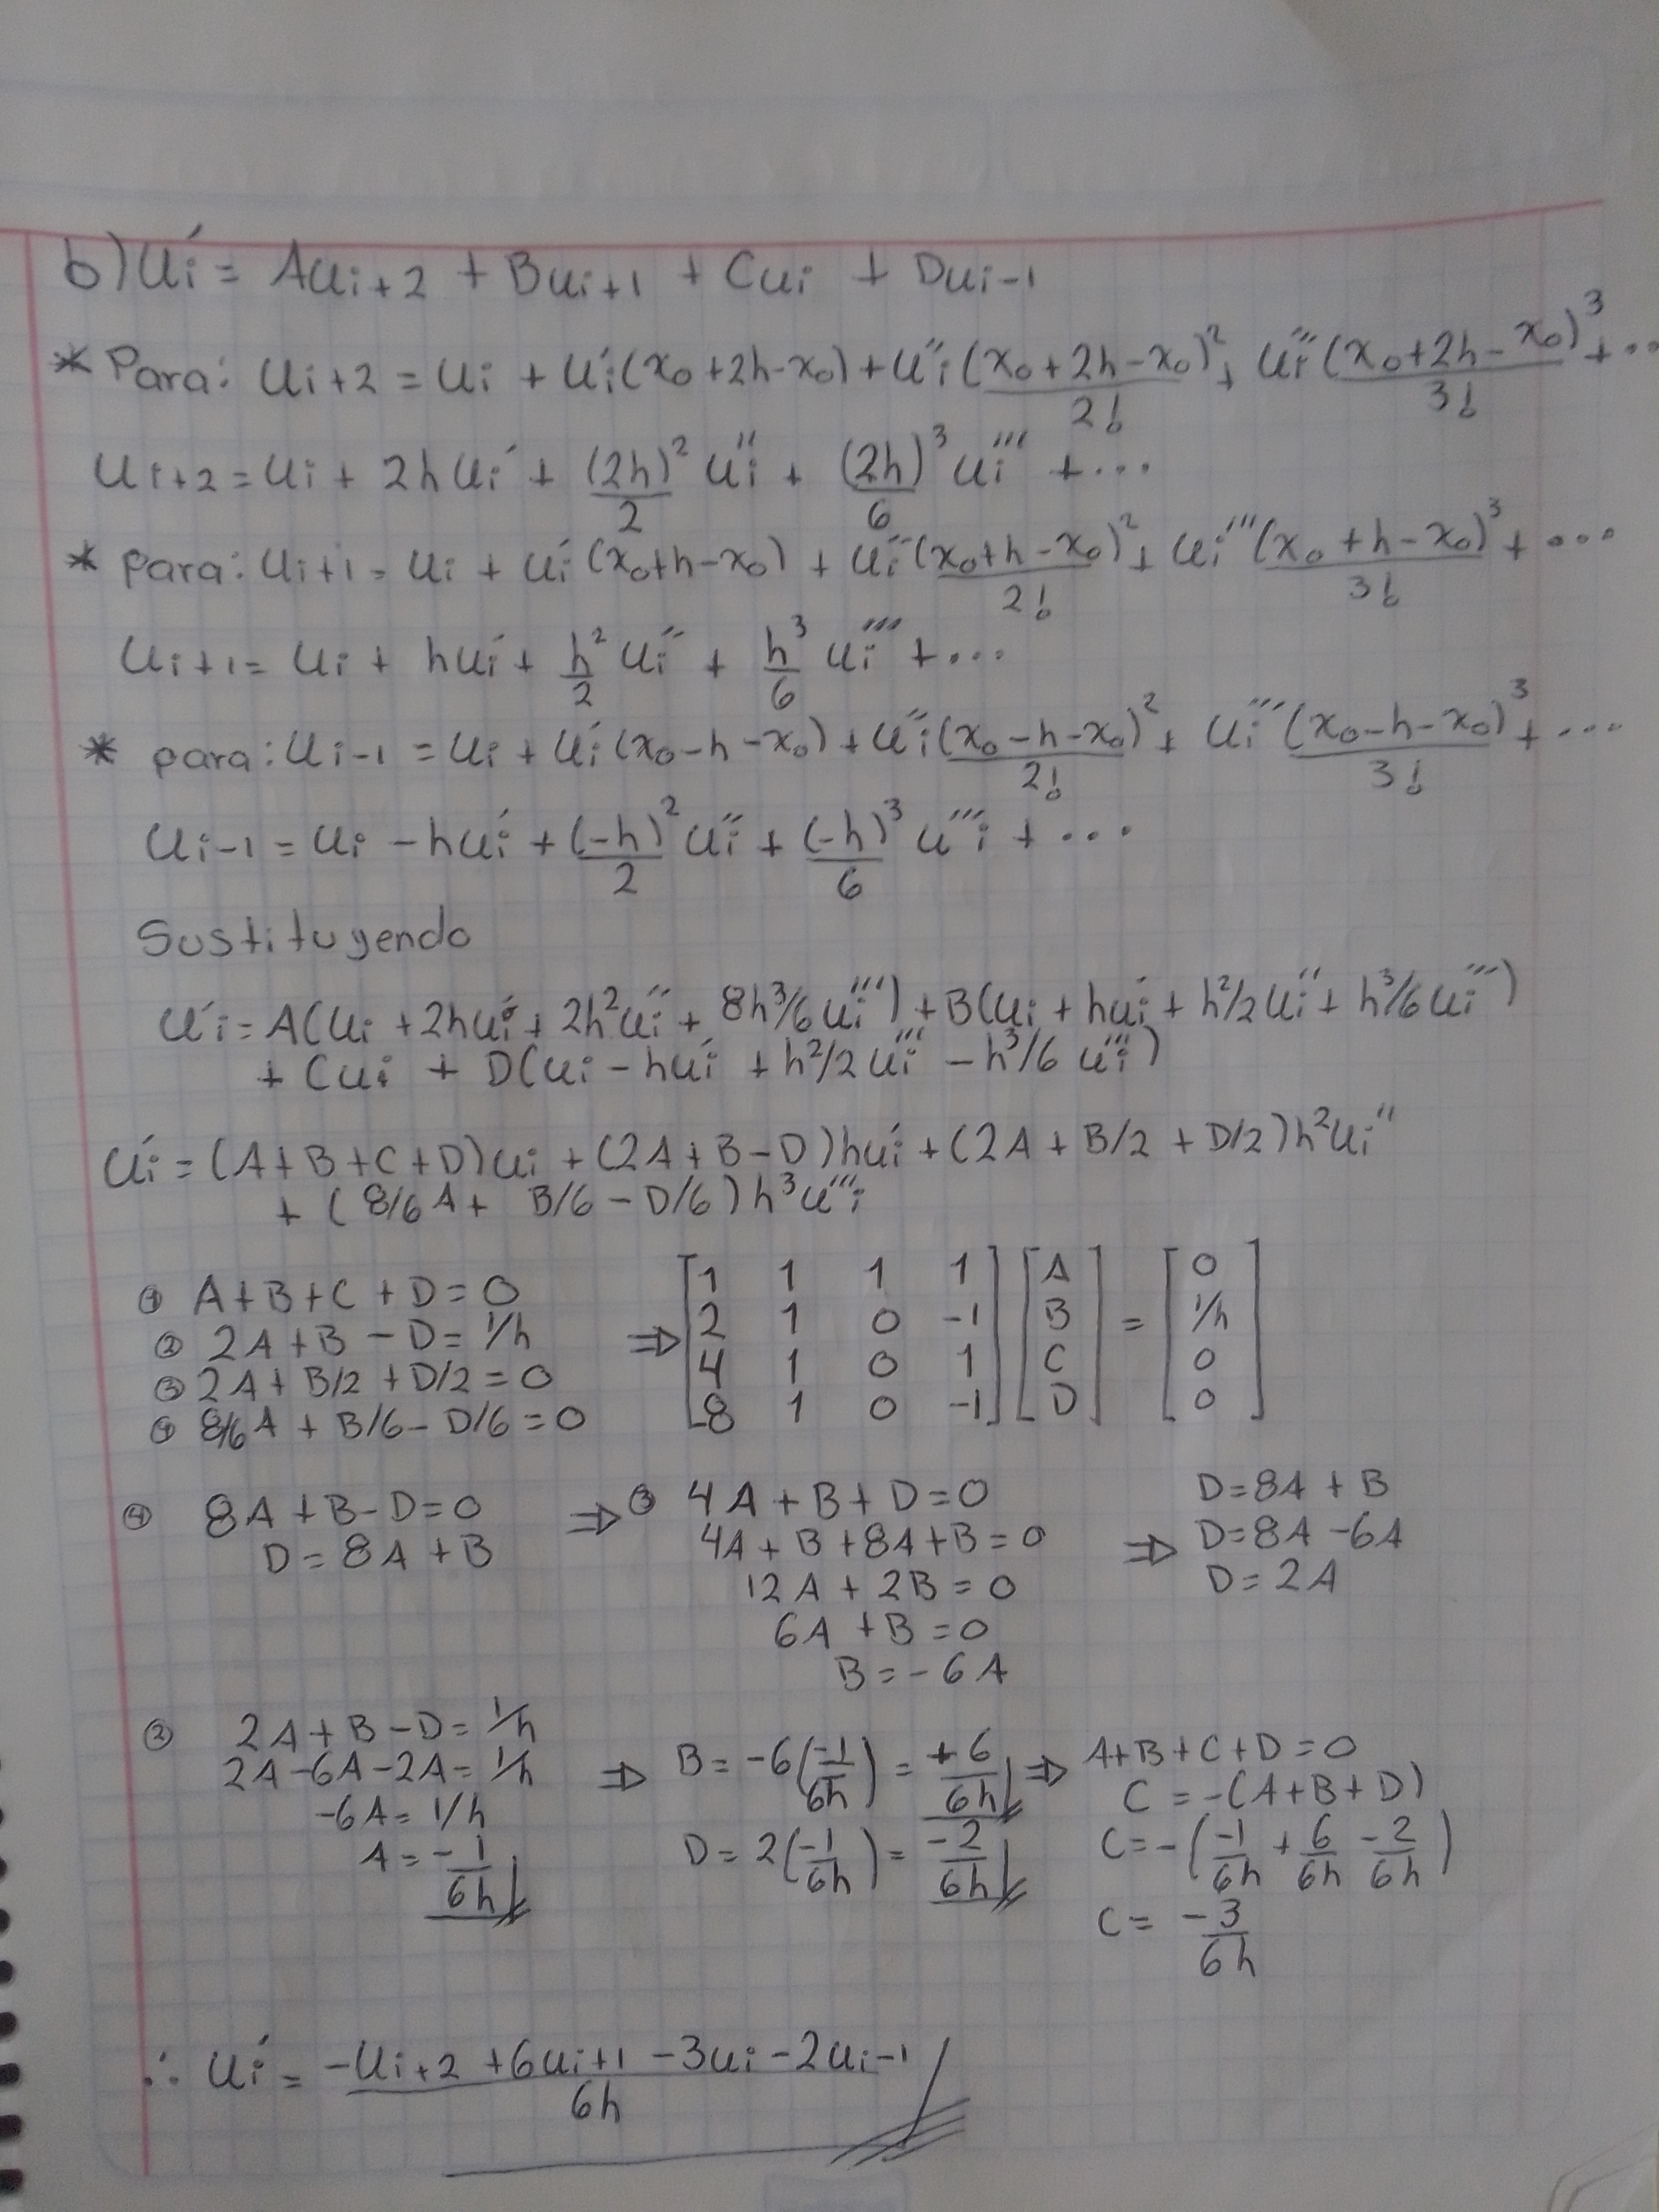 b) ui' = Aui+2 + Bui+1 + Cui + Dui-1
* Para: ui+2 = ui + ui'(x0+2h-x0) + ui''(x0+2h-x0)²/2! + ui'''(x0+2h-x0)³/3! + ...
ui+2 = ui + 2hui' + (2h)²/2 ui'' + (2h)³/6 ui''' + ...
* para: ui+1 = ui + ui'(x0+h-x0) + ui''(x0+h-x0)²/2! + ui'''(x0+h-x0)³/3! + ...
ui+1 = ui + hui' + h²/2 ui'' + h³/6 ui''' + ...
* para: ui-1 = ui + ui'(x0-h-x0) + ui''(x0-h-x0)²/2! + ui'''(x0-h-x0)³/3! + ...
ui-1 = ui - hui' + (-h)²/2 ui'' + (-h)³/6 ui''' + ...
Sustituyendo
ui' = A(ui + 2hui' + 2h²ui'' + 8h³/6 ui''') + B(ui + hui' + h²/2 ui'' + h³/6 ui''')
+ Cui + D(ui - hui' + h²/2 ui''' - h³/6 ui''')
ui' = (A+B+C+D)ui + (2A+B-D)hui' + (2A + B/2 + D/2)h²ui''
+ (8/6A + B/6 - D/6)h³ui'''
① A+B+C+D=0
② 2A+B-D=1/h
③ 2A+B/2+D/2=0
④ 8/6A + B/6 - D/6=0
⇒ [1 1 1 1] [A] = [0]
[2 1 0 -1] [B] [1/h]
[4 1 0 1] [C] [0]
[8 1 0 -1] [D] [0]
④ 8A+B-D=0
D=8A+B
⇒ ③ 4A+B+D=0
4A+B+8A+B=0
12A+2B=0
6A+B=0
B=-6A
⇒ D=8A+B
D=8A-6A
D=2A
② 2A+B-D=1/h
2A-6A-2A=1/h
-6A=1/h
A=-1/6h
⇒ B=-6(-1/6h)=+6/6h
D=2(-1/6h)=-2/6h
⇒ A+B+C+D=0
C=-(A+B+D)
C=-(-1/6h + 6/6h - 2/6h)
C=-3/6h
∴ ui' = -ui+2 +6ui+1 -3ui -2ui-1 / 6h